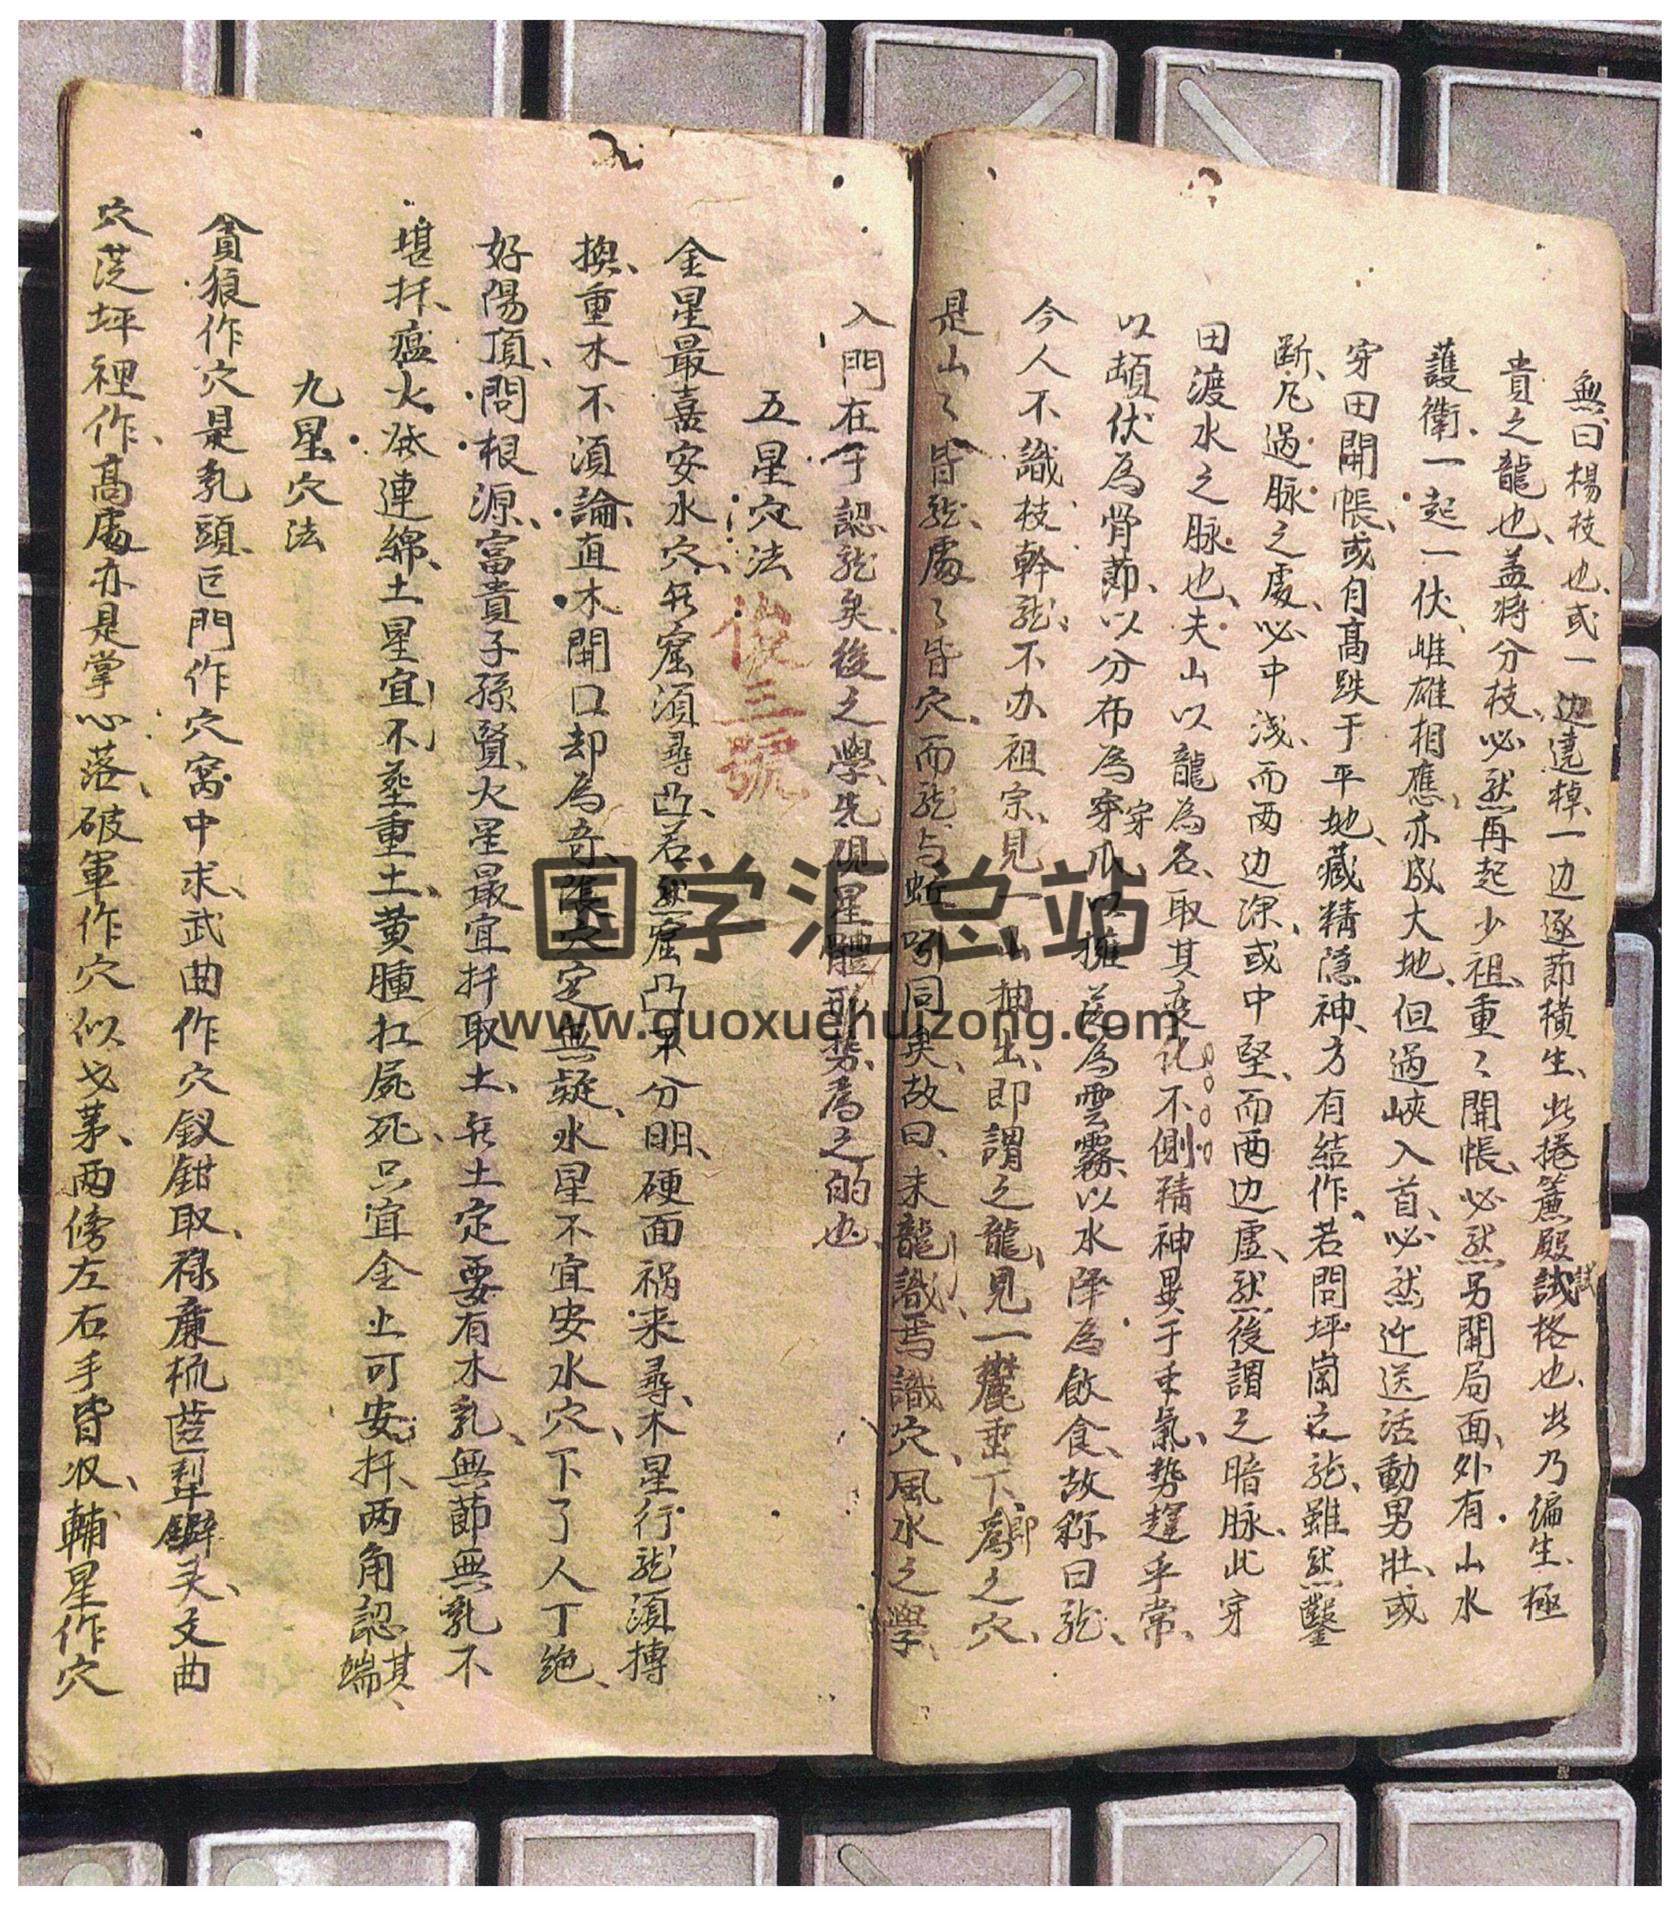 無曰楊枝也或一边遶棹一边逐節横生此捲簾殿試格也此乃偏生極
試
貴之龍也盖将分枝必然再起少祖重々開帳必然另開局面外有山水
護衛一起一伏雌雄相應亦成大地但過峽入首必然迎送活動男壯或
穿田開帳或自高跌于平地藏精隐神方有結作若問坪崗之龍雖然鑿
断凡過脉之處必中浅而两边深或中堅而两边虚然後謂之暗脉此穿
田渡水之脉也夫山以龍為名取其変化不側精神異于乗氣勢趕乎常
以頓伏為骨節以分布為穿爪以擁從為雲霧以水降為飲食故称曰龍
穿
今人不識枝幹龍不办祖宗見一山抽出即謂之龍見一麓垂下為之穴
即
是山々皆龍處々皆穴而龍与蚯蚓同矣故曰未龍識焉識穴風水之學
入門在于認龍矣後之學先現星體形势為之的也
五星穴法
俊三號
金星最嘉安水穴无窟須尋凸若無窟凸不分明硬面祸来尋木星行龍須摶
換重水不須論直木開口却為奇張穴定無疑水星不宜安水穴下了人丁绝
好陽頂問根源富貴子孫賢火星最宜扦取土无土定要有木乳無節無乳不
堪扦瘟火災連綿土星宜不塟重土黄腫扛屍死只宜金止可安扦两角認其端
九星穴法
貪狼作穴是乳頭巨門作穴窝中求武曲作穴釵鉗取禄廉梳齒犁鐴头文曲
穴從坪裡作高處亦是掌心落破軍作穴似戈茅两傍左右手皆收輔星作穴
国学汇总站
www.guoxuehuizong.com